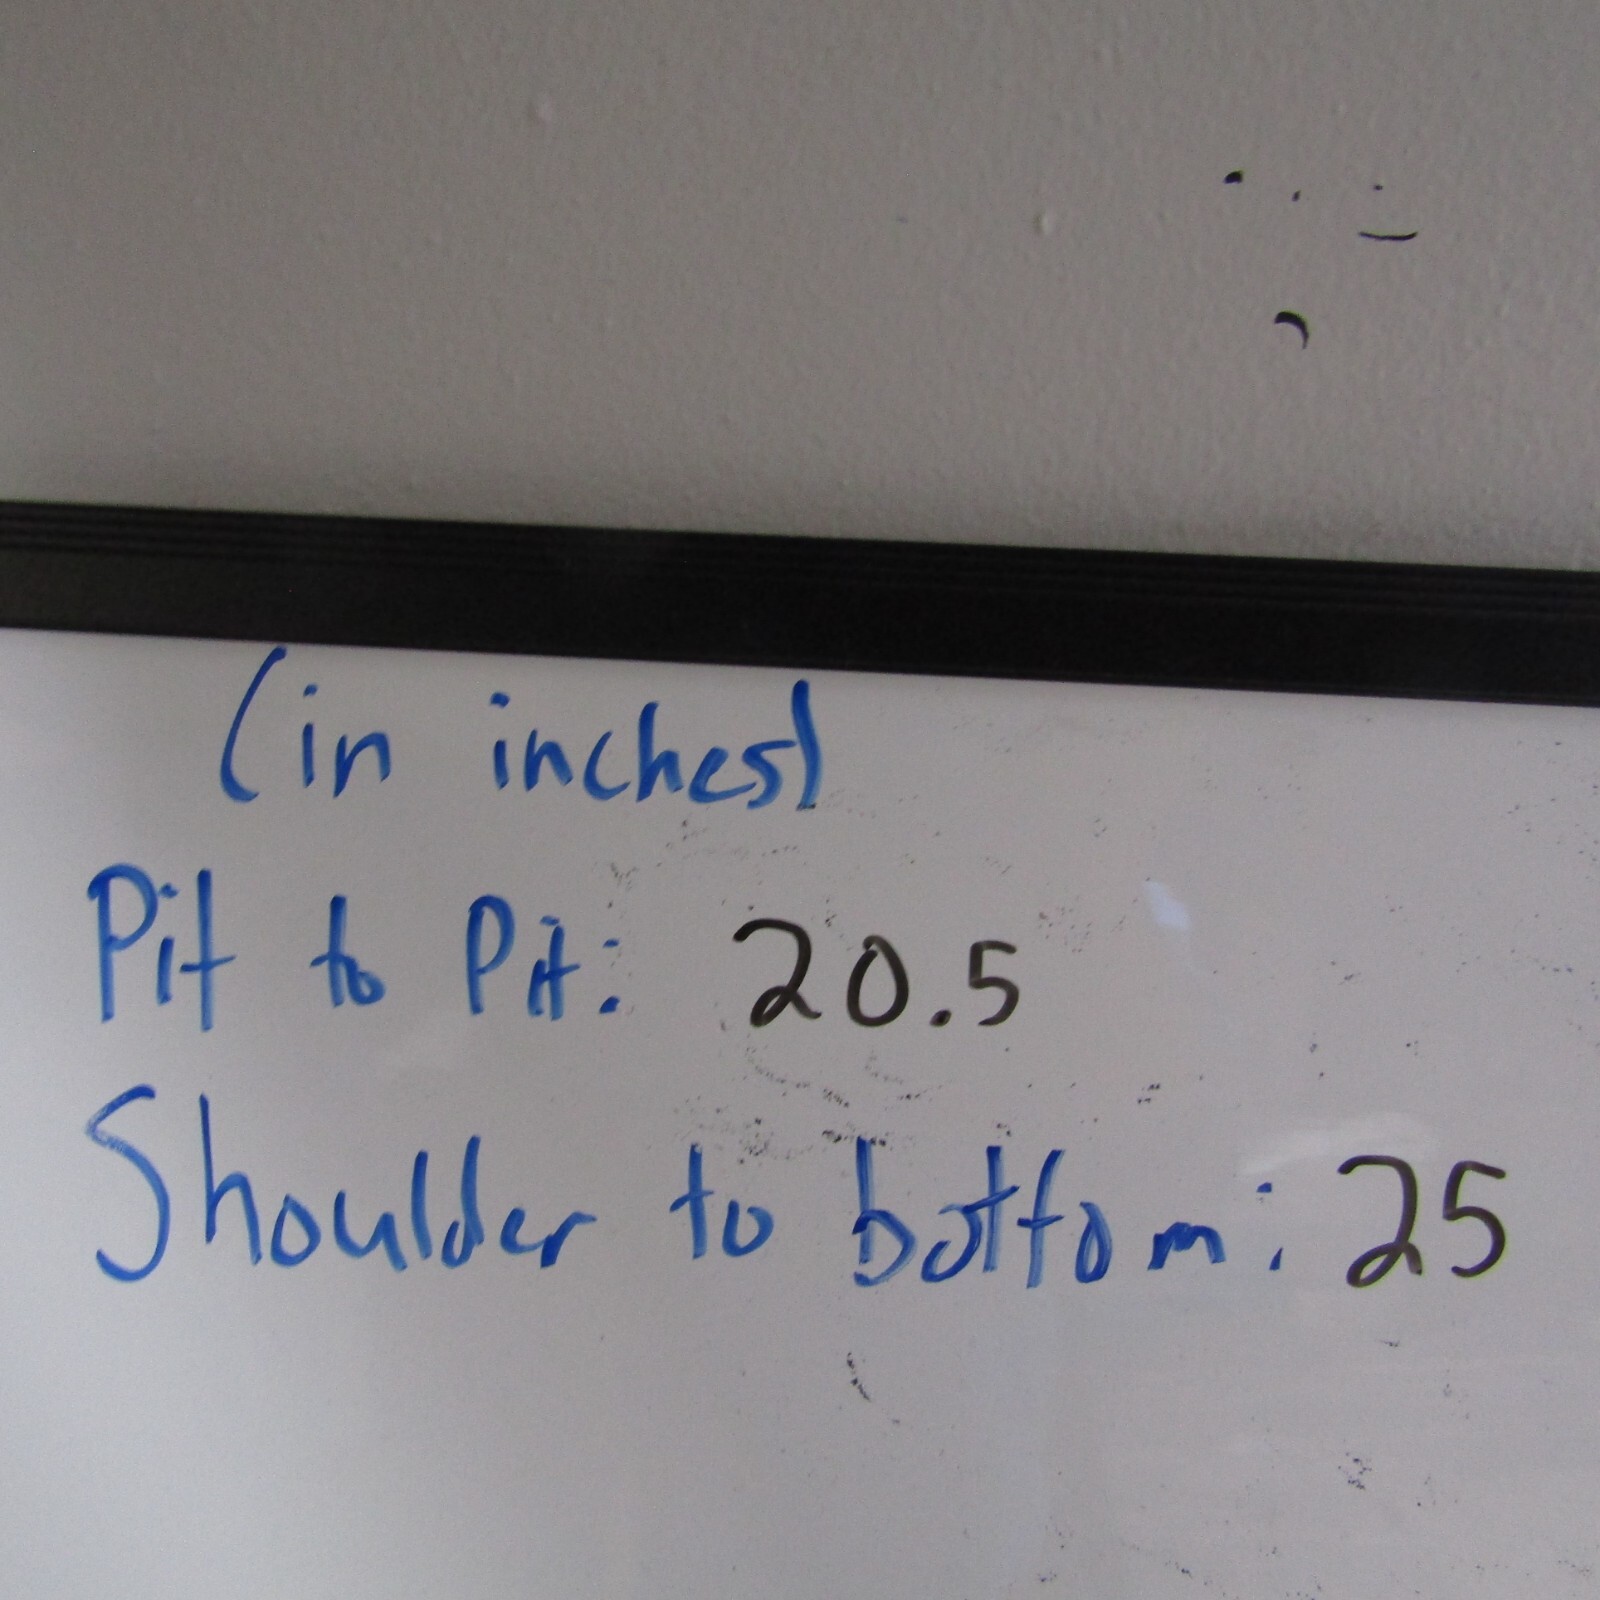 (in inches)
Pit to Pit: 20.5
Shoulder to bottom: 25